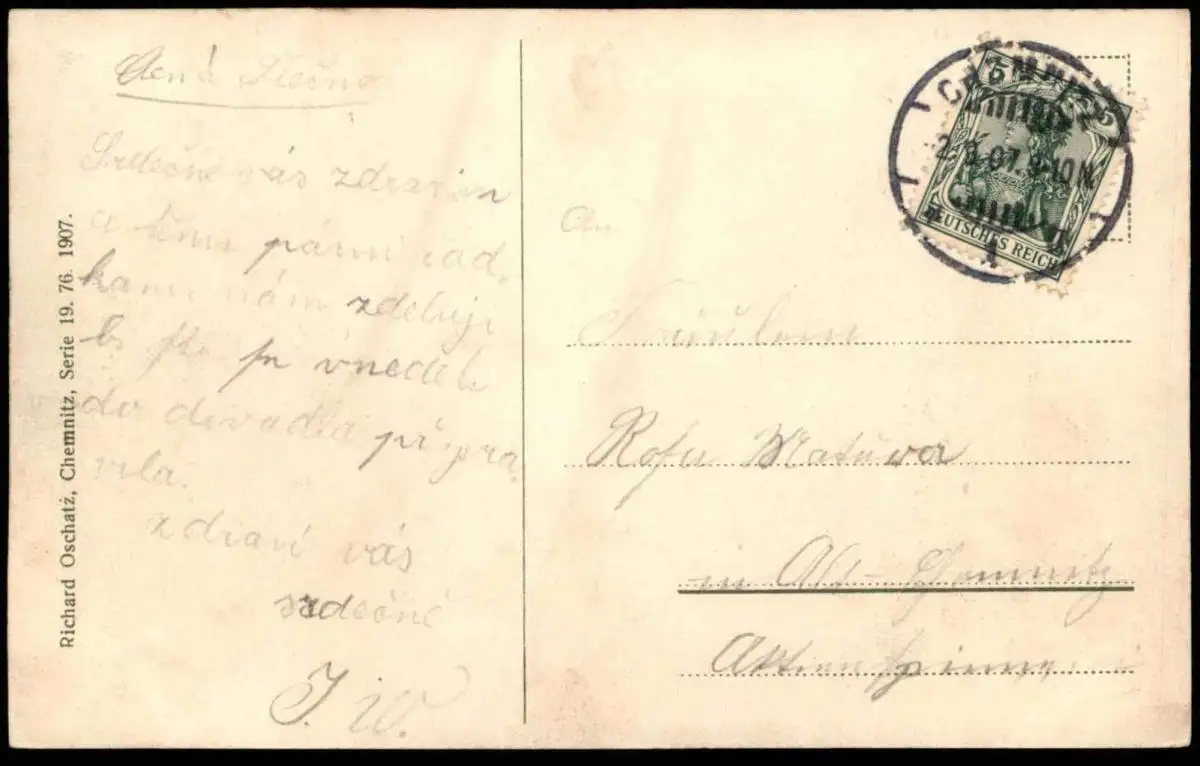 Ctená Slečno
Srdečně vás zdravim
a těmi pármi řad,
kami vám zdeluji
se v neděli
do divadla připra,
vila.
zdraví vás
srdečně
J. W.
Richard Oschatz, Chemnitz, Serie 19. 76. 1907.
CHEMNITZ
07. 9-10 N.
1
5 5
DEUTSCHES REICH
An
Fräulein
Rosa
in Alt-Chemnitz
Aktienspinnerei